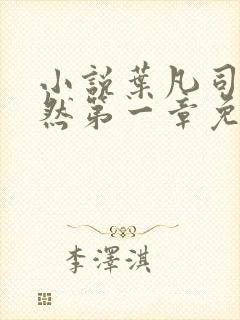 小說葉凡司
然第一章免
李澤淇